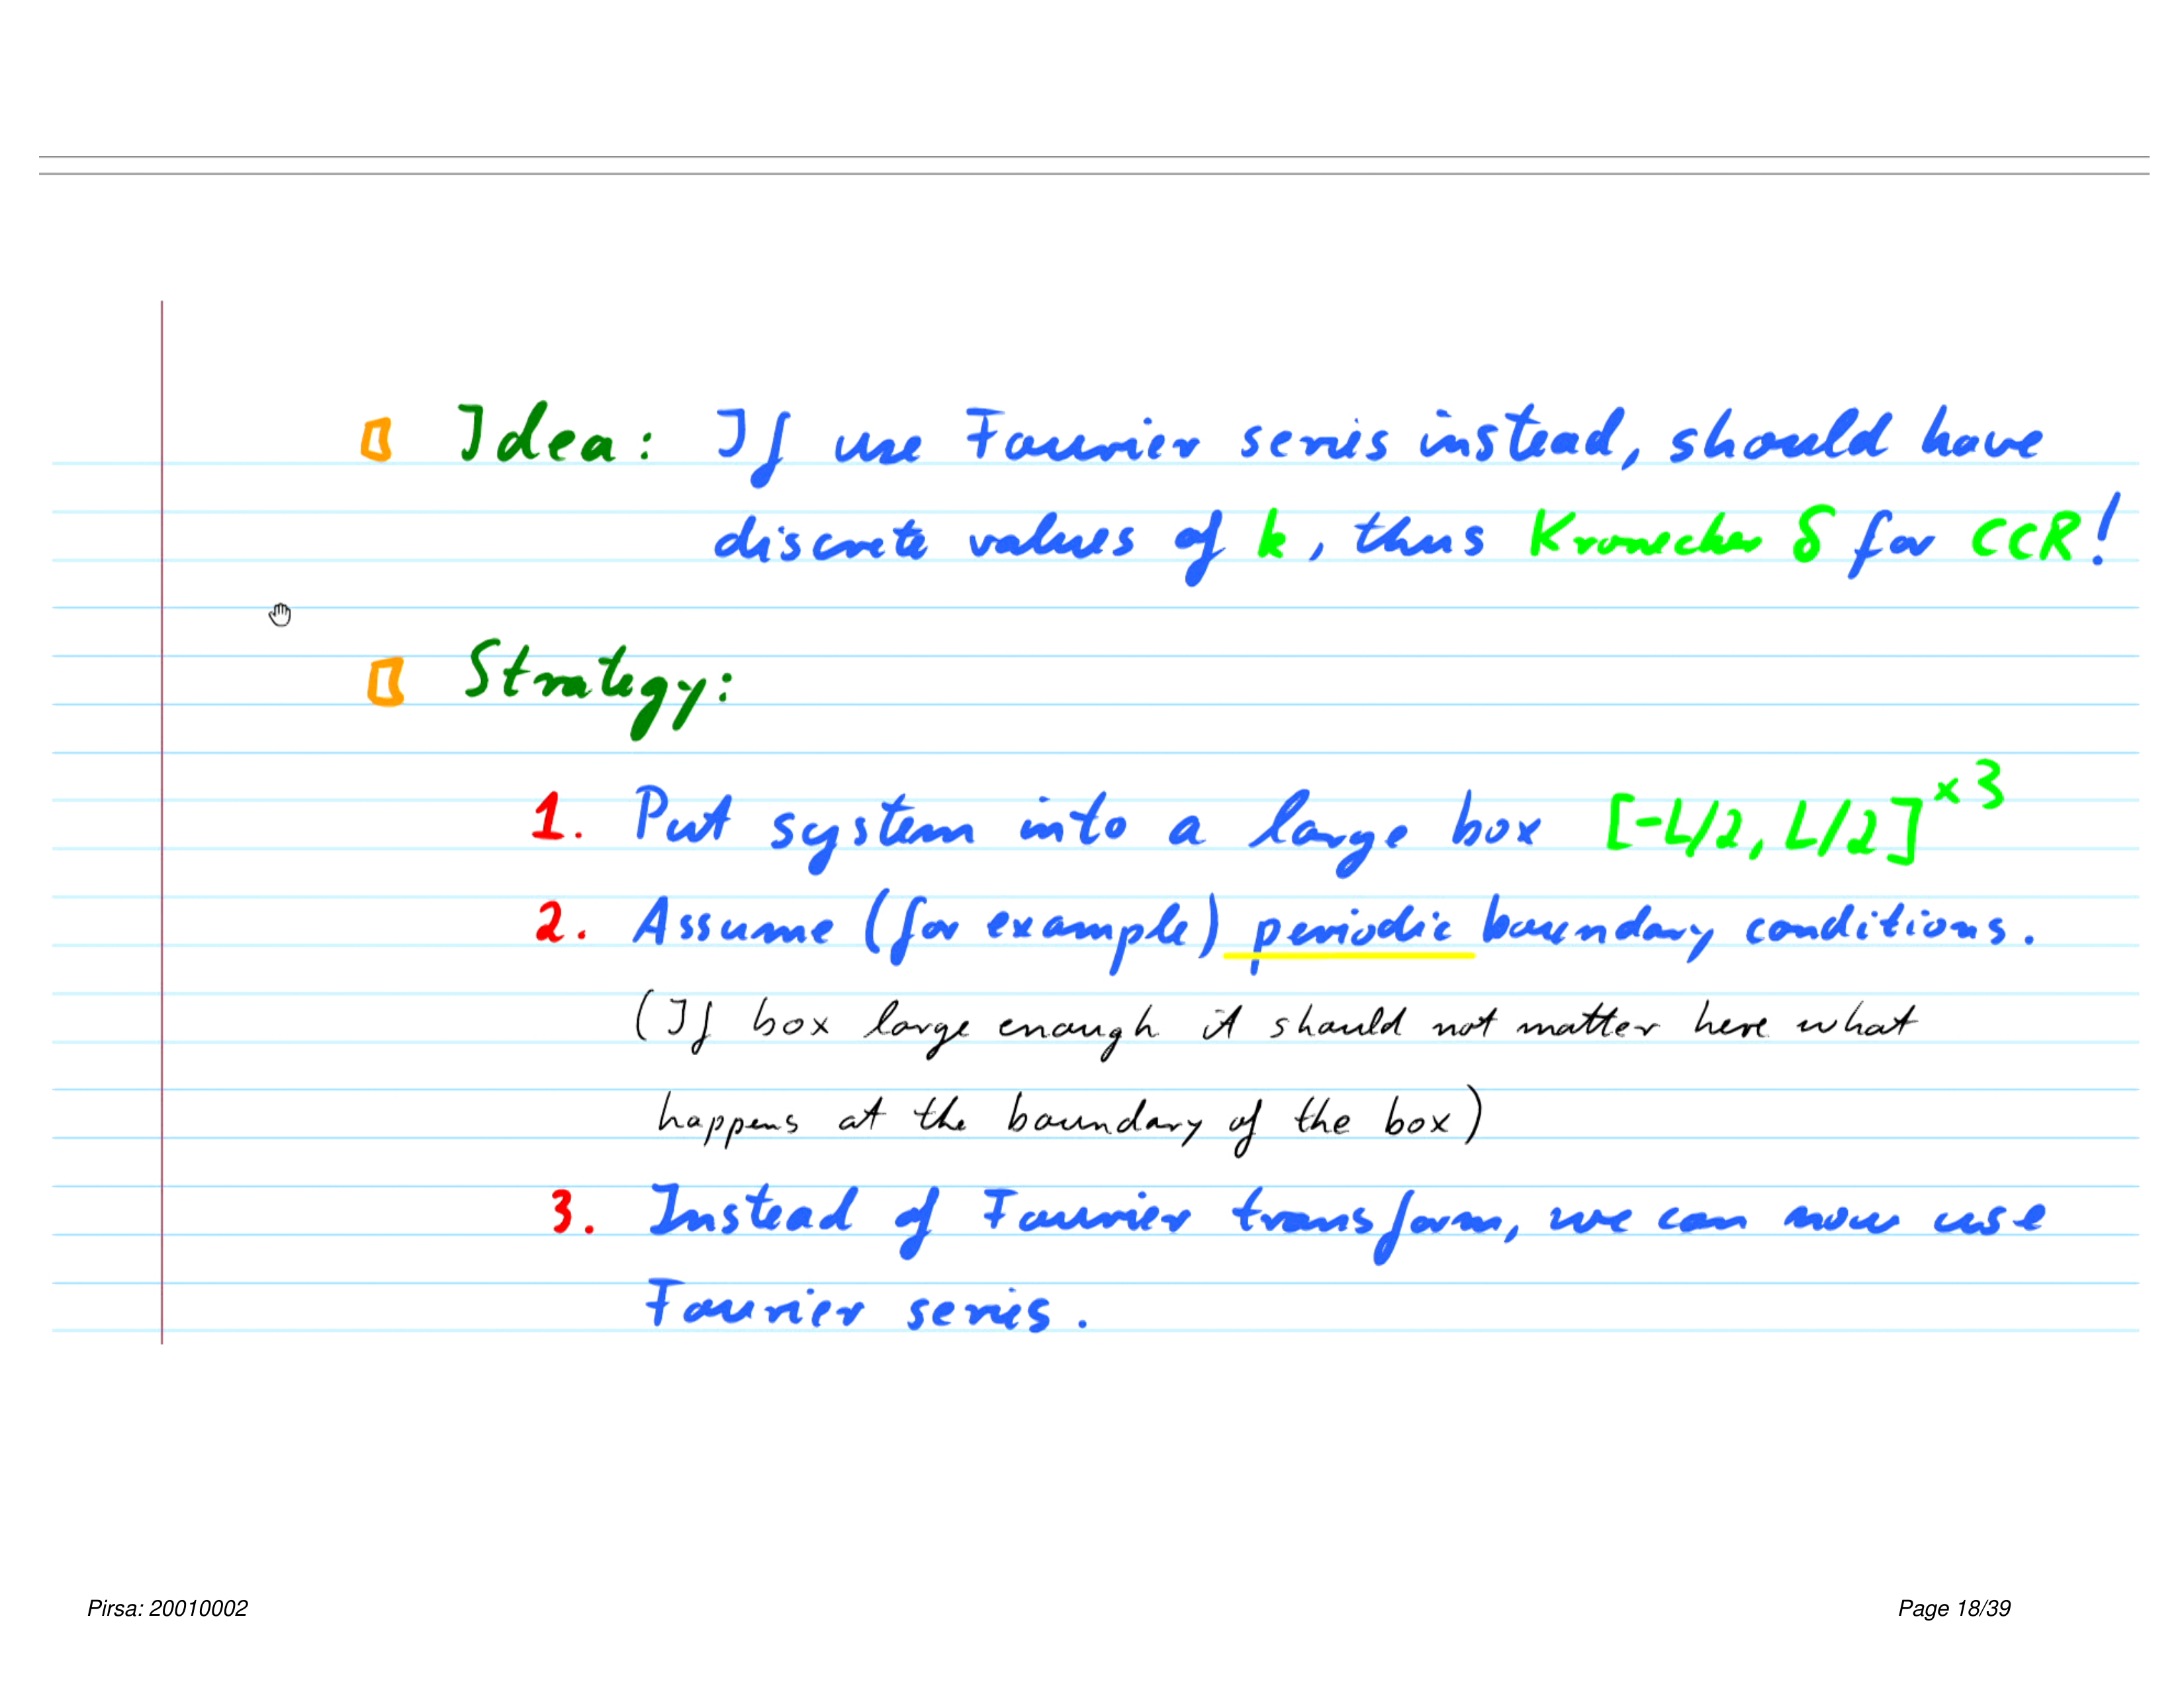 Idea: If use Fourier series instead, should have
discrete values of k, thus Kronecker δ for CCR!
Strategy:
1. Put system into a large box [-L/2, L/2]^×3
2. Assume (for example) periodic boundary conditions.
(If box large enough it should not matter here what
happens at the boundary of the box)
3. Instead of Fourier transform, we can now use
Fourier series.
Pirsa: 20010002
Page 18/39